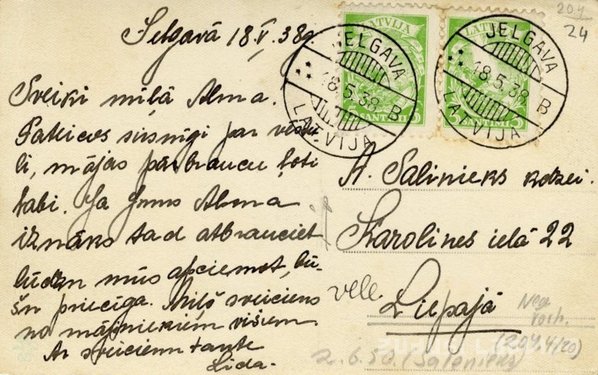 Jelgavā 18.V.38g
Sveiki mīļā Alma.
Pateicos sirsnīgi par vēstu
li, mājās pārbraucu ļoti
labi. Ja Jums Alma
iznāks tad atbrauciet
lūdzu mūs apciemot, bū-
šu priecīga. Mīļš sveiciens
no mājniekiem visiem.
Ar sveicienu tante
Lida.
LATVIJA
LATVIJA
JELGAVA
18.5.38
B
LATVIJA
JELGAVA
18.5.38
B
LATVIJA
20.4
24
A. Salinieks kdzei.
Karolines ielā 22
Liepājā
(20.4.4/20)
2.6.50.